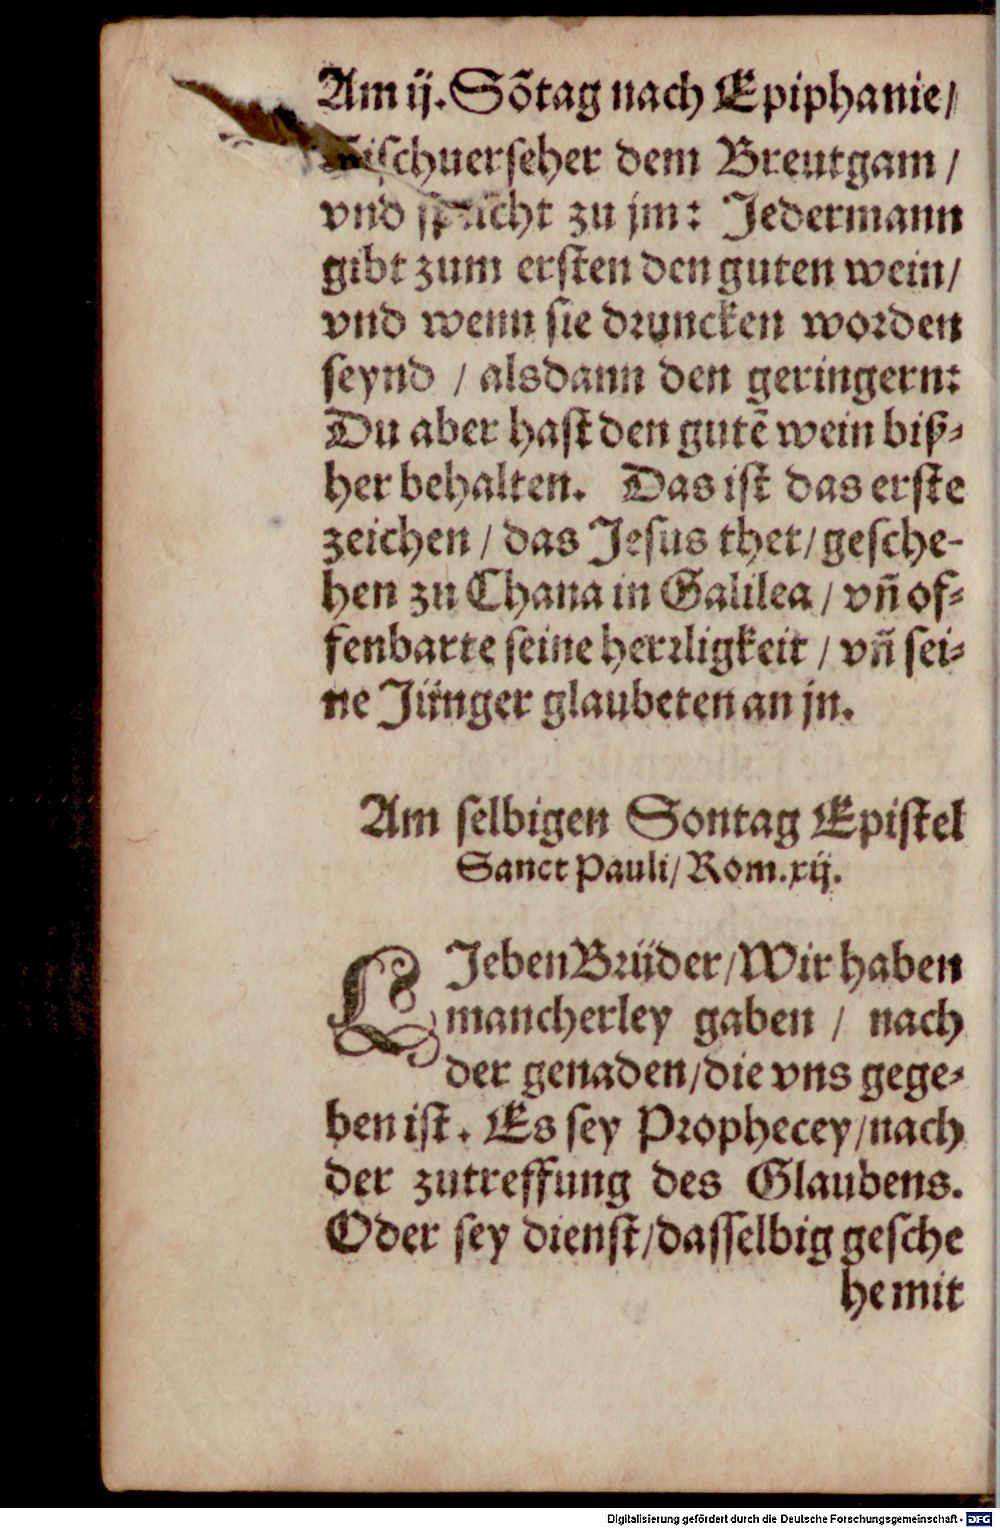 Am ij. Sõtag nach Epiphanie/
Tischuerseher dem Breutgam /
vnd spricht zu jm: Jedermann
gibt zum ersten den guten wein/
vnd wenn sie druncken worden
seynd / alsdann den geringern:
Du aber hast den gutẽ wein biß-
her behalten. Das ist das erste
zeichen / das Jesus thet/ gesche-
hen zu Chana in Galilea / vñ of-
fenbarte seine herrligkeit / vñ sei-
ne Jünger glaubeten an jn.
Am selbigen Sontag Epistel
Sanct Pauli/ Rom. xij.
LJeben Brüder/Wir haben
mancherley gaben / nach
der genaden/die vns gege-
ben ist. Es sey Prophecey/nach
der zutreffung des Glaubens.
Oder sey dienst/dasselbig gesche
he mit
Digitalisierung gefördert durch die Deutsche Forschungsgemeinschaft - DFG